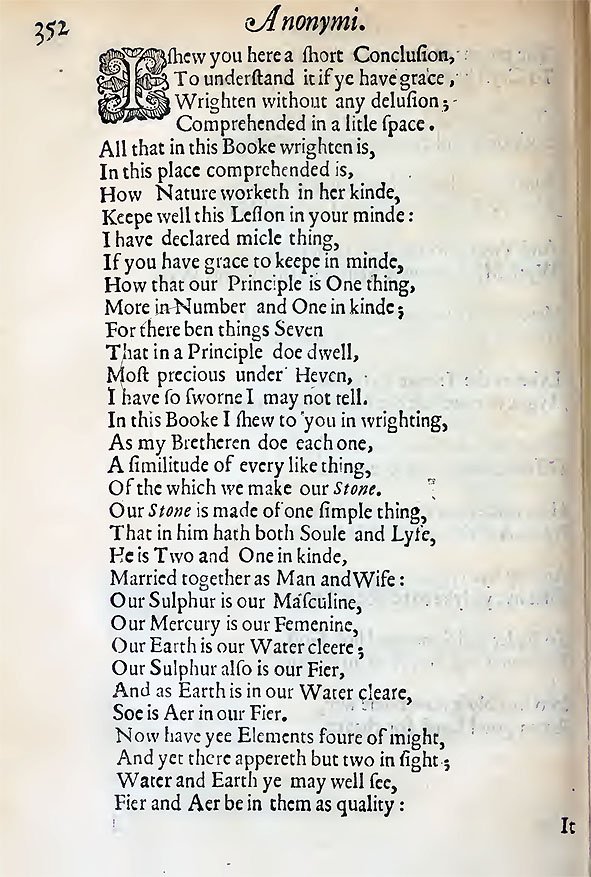 352
Anonymi.
I ſhew you here a ſhort Concluſion,
To underſtand it if ye have grace,
Wrighten without any deluſion;
Comprehended in a litle ſpace.
All that in this Booke wrighten is,
In this place comprehended is,
How Nature worketh in her kinde,
Keepe well this Leſſon in your minde:
I have declared micle thing,
If you have grace to keepe in minde,
How that our Principle is One thing,
More in Number and One in kinde;
For there ben things Seven
That in a Principle doe dwell,
Moſt precious under Heven,
I have ſo ſworne I may not tell.
In this Booke I ſhew to you in wrighting,
As my Bretheren doe each one,
A ſimilitude of every like thing,
Of the which we make our Stone.
Our Stone is made of one ſimple thing,
That in him hath both Soule and Lyfe,
He is Two and One in kinde,
Married together as Man and Wife:
Our Sulphur is our Maſculine,
Our Mercury is our Femenine,
Our Earth is our Water cleere;
Our Sulphur alſo is our Fier,
And as Earth is in our Water cleare,
Soe is Aer in our Fier.
Now have yee Elements foure of might,
And yet there appereth but two in ſight;
Water and Earth ye may well ſee,
Fier and Aer be in them as quality:
It